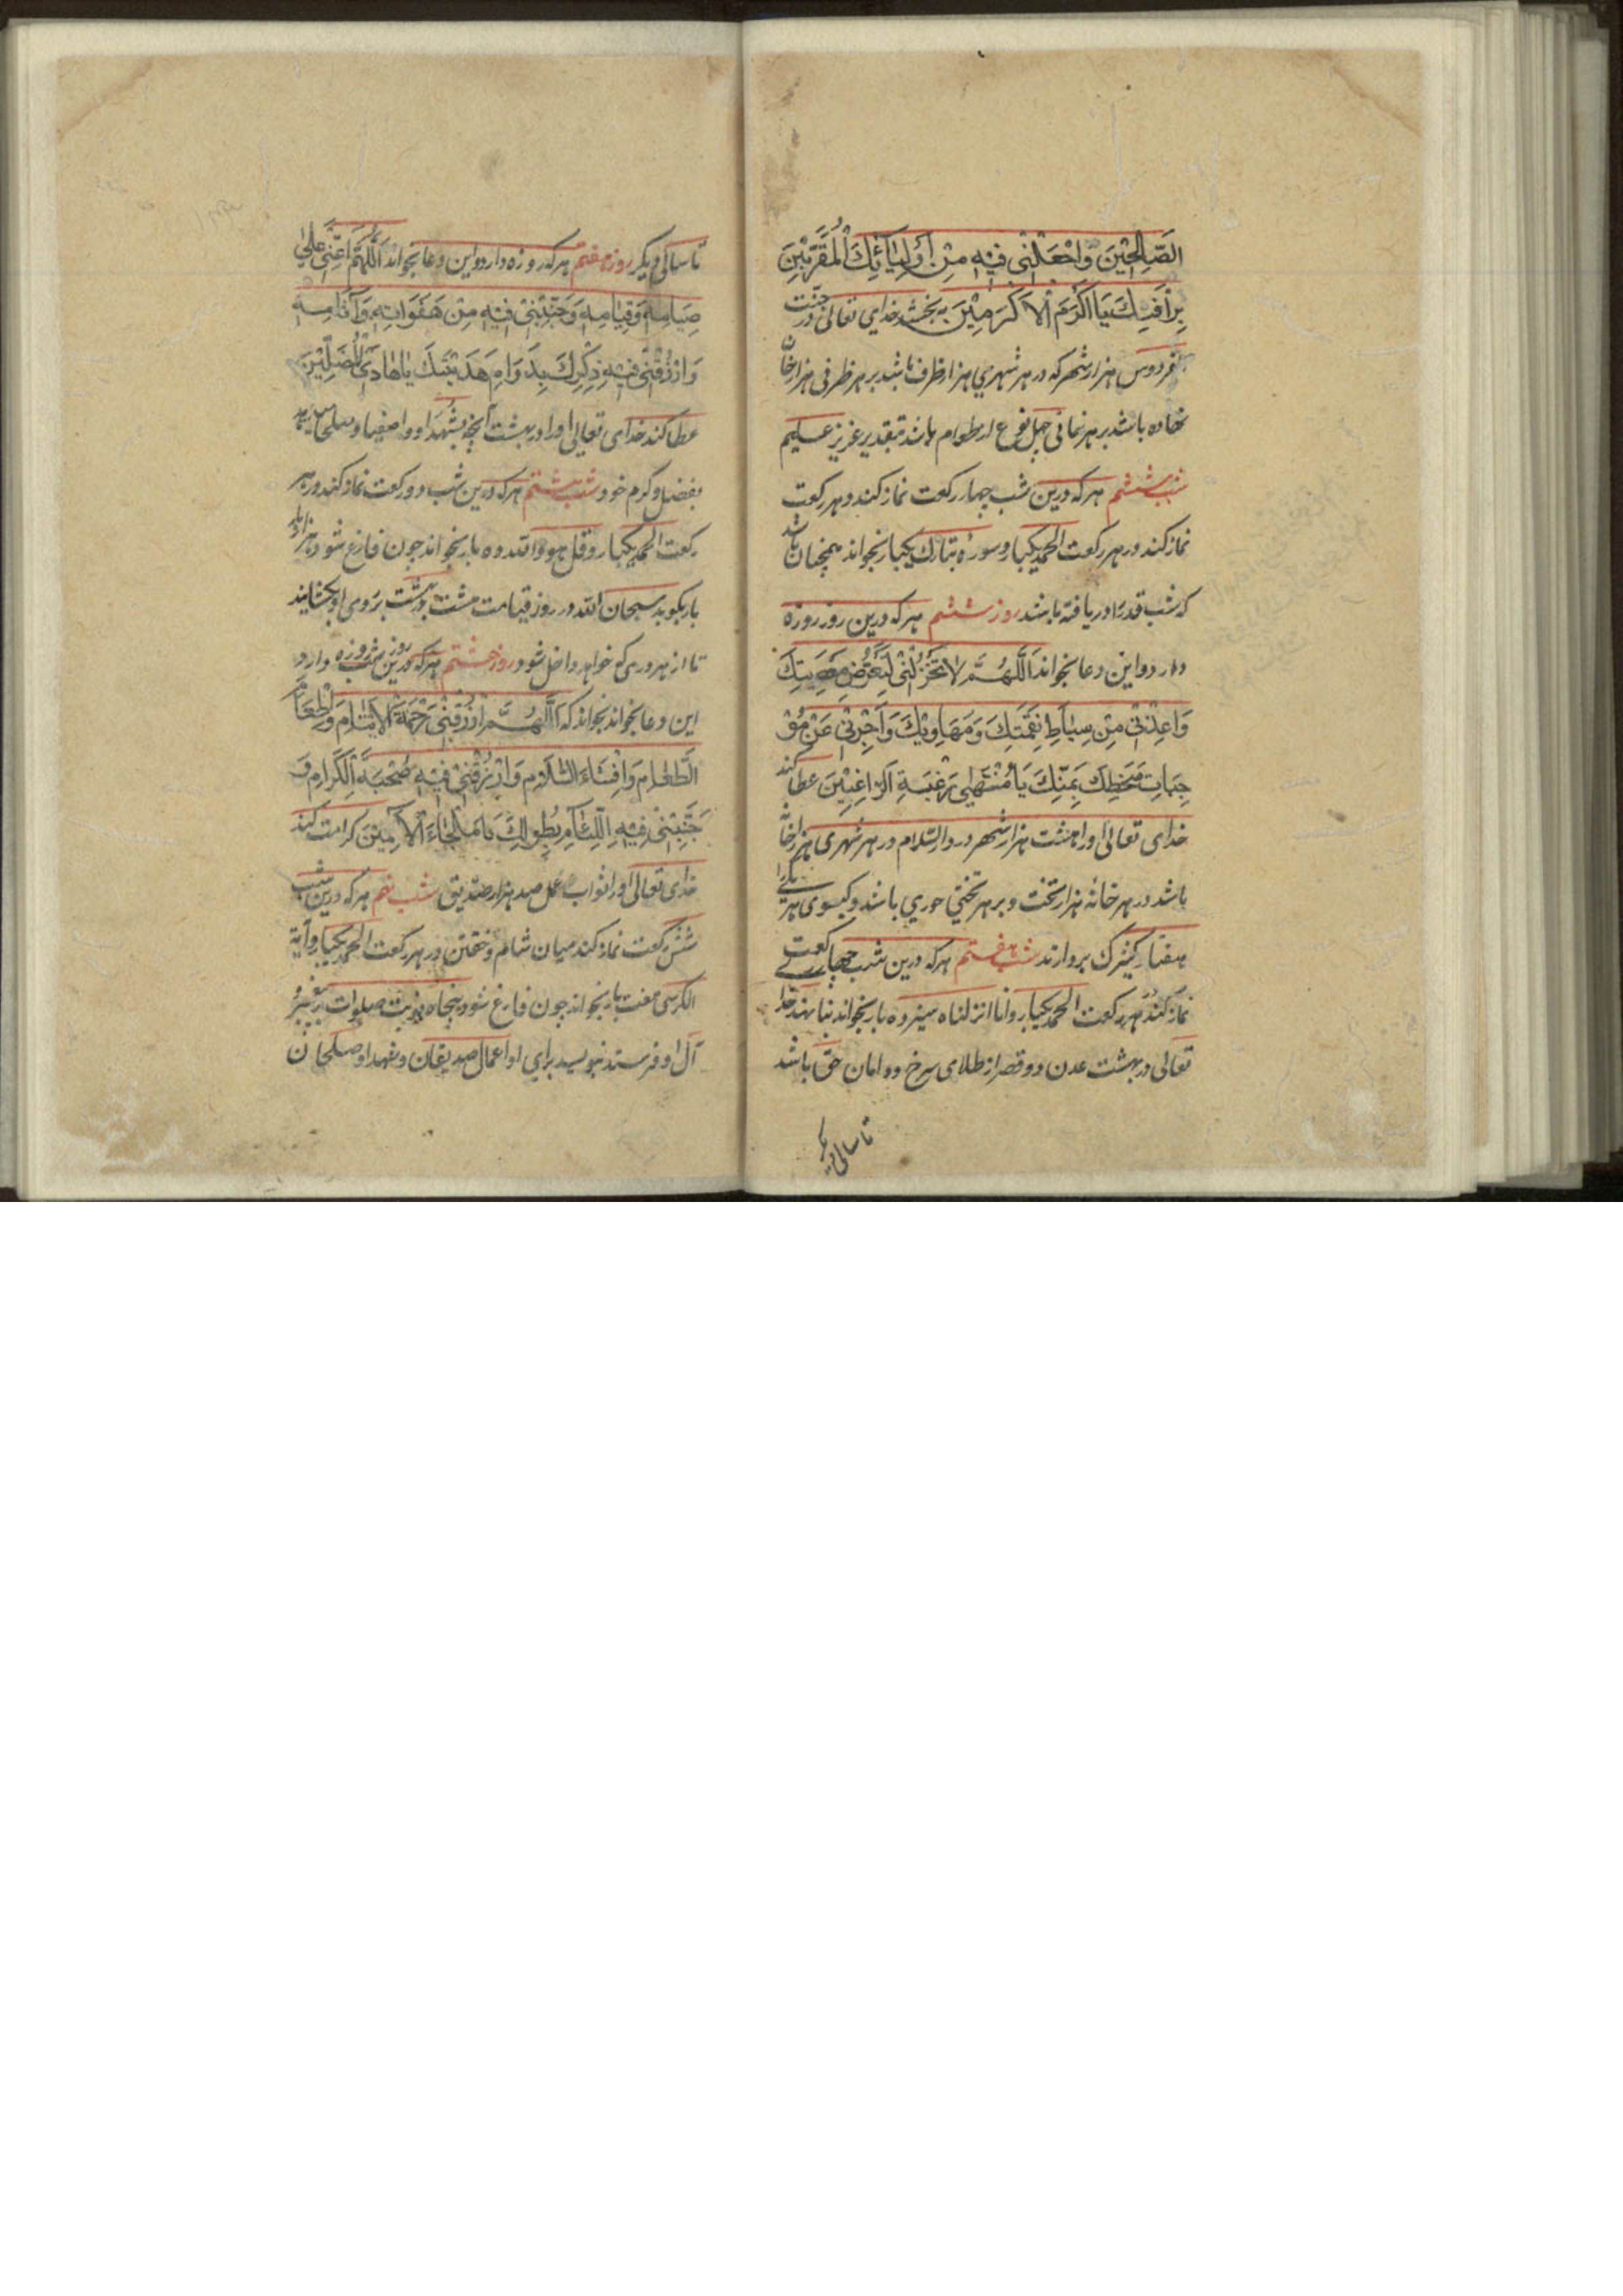 الصَّالِحِيْنَ وَاجْعَلْنِى فِيْهِ مِنْ اَوْلِيَائِكَ الْمُقَرَّبِيْنَ
بِرَأفَتِكَ يَا اَكْرَمَ الْاَكْرَمِيْنَ به بخشد خداي تعالى در جنّت
فردوس هزار شهر كه در هر شهري هزار ظرف باشد بر هر ظرفى هزار خانى
نهاده باشد بر هر خانى چهل نوع از طعام باشد بتقدير عزيز عليم
شب ششم هر كه درين شب چهار ركعت نماز كند و هر ركعت
نماز كند در هر ركعت الحمد يكبار و سورهٔ تبارك يكبار بخواند همچنان باشد
كه شب قدر را دريافته باشد روز ششم هر كه درين روز روزه
دارد و اين دعا بخواند اَللّٰهُمَّ لَا تَخْذُلْنِى لِتَعَرُّضِ مَعْصِيَتِكَ
وَاعِذْنِى مِنْ سِيَاطِ نِقْمَتِكَ وَمَهَاوِيْكَ وَاَجِرْنِى عَنْ مُوْ
جِبَاتِ سَخَطِكَ بِمَنِّكَ يَا مُنْتَهٰى رَغْبَةِ الرَّاغِبِيْنَ عطا كند
خداى تعالى او را هشت هزار شهر در دار السّلام در هر شهرى هزار خانه
باشد در هر خانه هزار تخت و بر هر تختي حوري باشد و گيسوى هر يكى را
هفتاد كنيزك بردارند شب هفتم هر كه درين شب چهار ركعت
نماز كند در هر ركعت الحمد يكبار و انا انزلناه سيزده بار بخواند بنا نهد خدا
تعالى در بهشت عدن دو قصر از طلاى سرخ و در امان حق باشد
تا سالى ديگر
تا سالى ديگر روز هفتم هر كه روزه دارد و اين دعا بخواند اَللّٰهُمَّ اَعِنِّى عَلٰى
صِيَامِهِ وَقِيَامِهِ وَجَنِّبْنِى فِيْهِ مِنْ هَفَوَاتِهِ وَآثَامِهِ
وَارْزُقْنِى فِيْهِ ذِكْرَكَ بِدَوَامِ هَدَيْتِكَ يَا هَادِىَ الْمُضِلِّيْنَ
عطا كند خداى تعالى او را در بهشت آنچه بشهدا و اصفيا و صلحا
بفضل و كرم خود شب هشتم هر كه درين شب دو ركعت نماز كند در هر
ركعت الحمد يكبار و قل هو الله ده بار بخواند چون فارغ شود هزار بار
بار بگويد سبحان الله در روز قيامت هشت در بهشت بر وى او بگشايند
تا از هر درى كه خواهد داخل شود روز هشتم هر كه درين روز روزه دارد
اين دعا بخواند بخواند كه اَللّٰهُمَّ ارْزُقْنِى رَحْمَةَ الْاَيْتَامِ وَاِطْعَامَ
الطَّعَامِ وَاِفْشَاءَ السَّلَامِ وَارْزُقْنِى فِيْهِ صُحْبَةَ الْكِرَامِ وَ
جَنِّبْنِى فِيْهِ اللِّئَامِ بِطَوْلِكَ يَا مَلْجَاءَ الْآمِيْنَ كرامت كند
خداى تعالى او را ثواب عمل صد هزار صدّيق شب نهم هر كه درين شب
شش ركعت نماز كند ميان شام و خفتن در هر ركعت الحمد يكبار و آية
الكرسى هفت بار بخواند چون فارغ شود پنجاه نوبت صلوات بر پيغمبر و
آل او فرستد بنويسد براي او اعمال صديقان و شهدا و صلحا ن